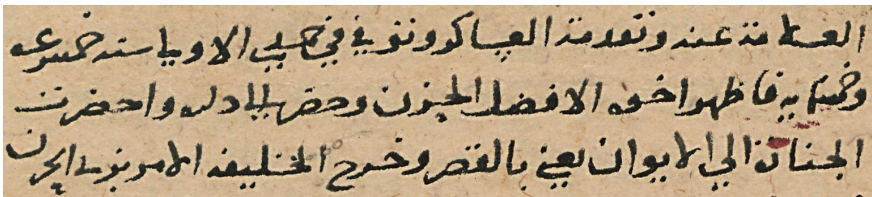 العلامة عنه وتقدمة العساكر وتوفي في جمادى الاولى سنة خمس عشر
وخمسمايه فاظهر اخوه الافضل الحزن وحضر ليلا دله واحضرت
الجنازة الي الايوان يعني بالقصر وخرج الخليفة الامر بزى الحزن